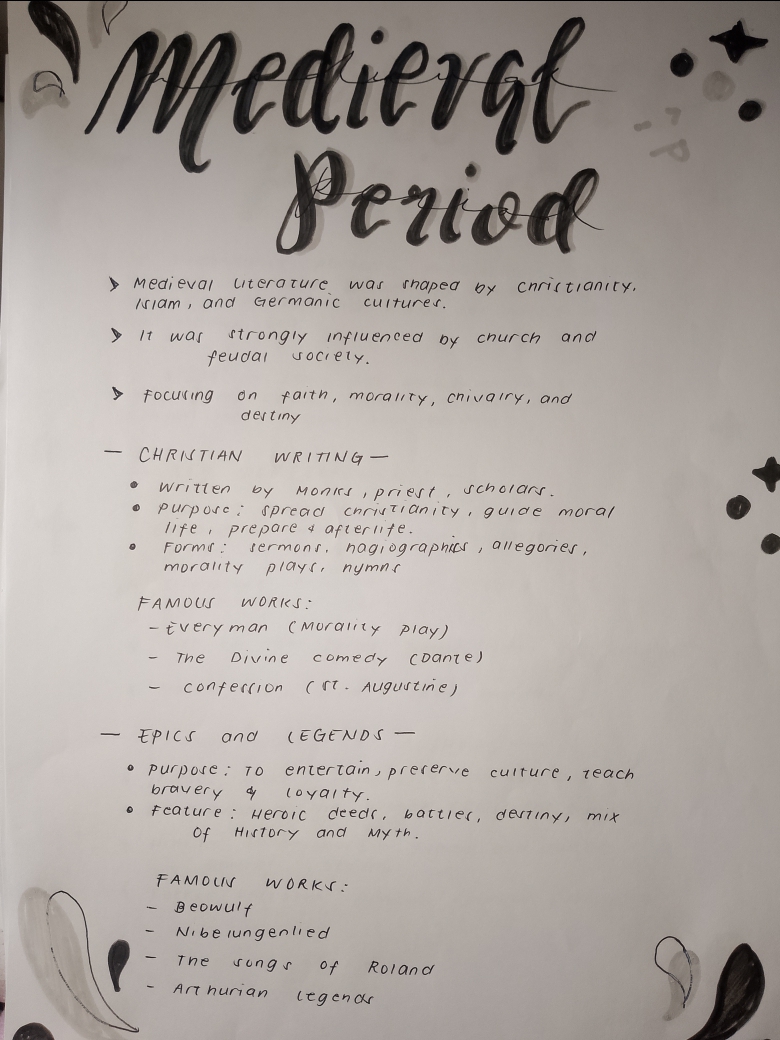 Medieval
Period
Medieval literature was shaped by Christianity,
Islam, and Germanic cultures.
It was strongly influenced by church and
feudal society.
Focusing on faith, morality, chivalry, and
destiny
— CHRISTIAN WRITING —
• Written by Monks, priest, scholars.
• Purpose: spread christianity, guide moral
life, prepare 4 afterlife.
• Forms: sermons, hagiographics, allegories,
morality plays, hymns
FAMOUS WORKS:
- Everyman (Morality Play)
- The Divine comedy (Dante)
- Confession (St. Augustine)
— EPICS and LEGENDS —
• Purpose: To entertain, preserve culture, teach
bravery & loyalty.
• Feature: Heroic deeds, battles, destiny, mix
Of History and Myth.
FAMOUS WORKS:
- Beowulf
- Nibelungenlied
- The songs of Roland
- Arthurian legends